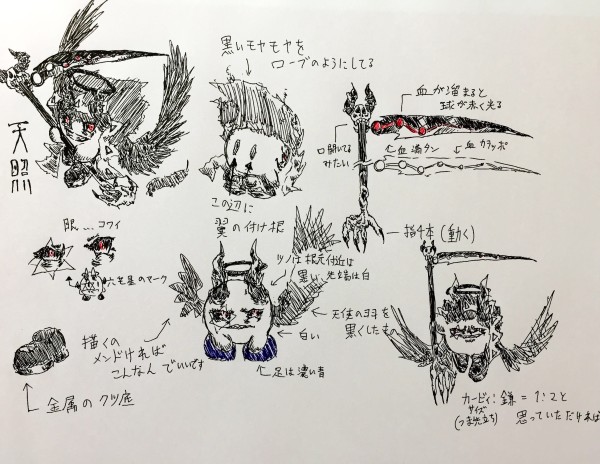 黒いモヤモヤを
ローブのようにしてる
血が溜まると
球が赤く光る
天照
口開いてる
みたい
↑血満タン
血カラッポ
この辺に
翼の付け根
指4本(動く)
眼...コワイ
ツノは根元付近は
黒い、先端は白
六芒星のマーク
天使のヨ引を
黒くしたもの
白い
描くの
メンドければ
こんなんでいいです
足は濃い青
金属のクツ底
カービィ:鎌=1:2こと
サイズ
(つま先立ち)
思っていただければ